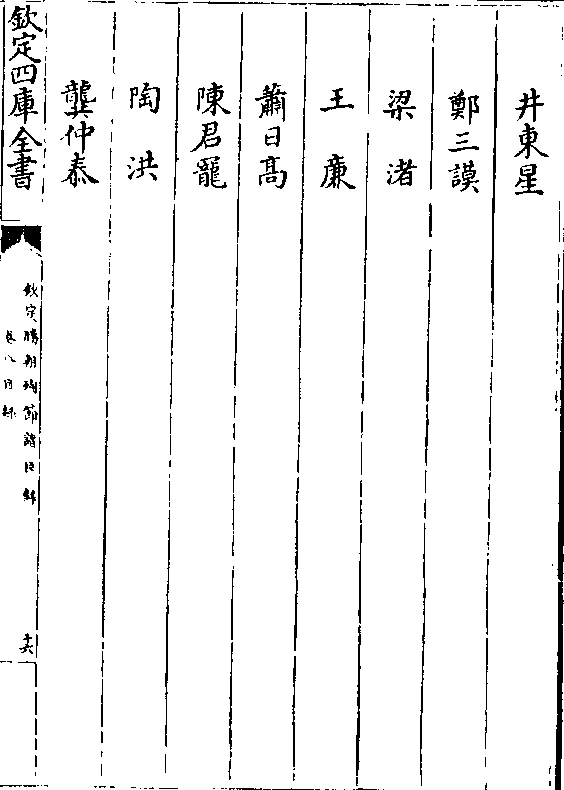 井東星
鄭三謨
梁渚
王廉
蕭日髙
陳君寵
陶洪
龔仲泰
欽定四庫全書
欽定勝朝殉節諸臣錄
卷八目錄
十六